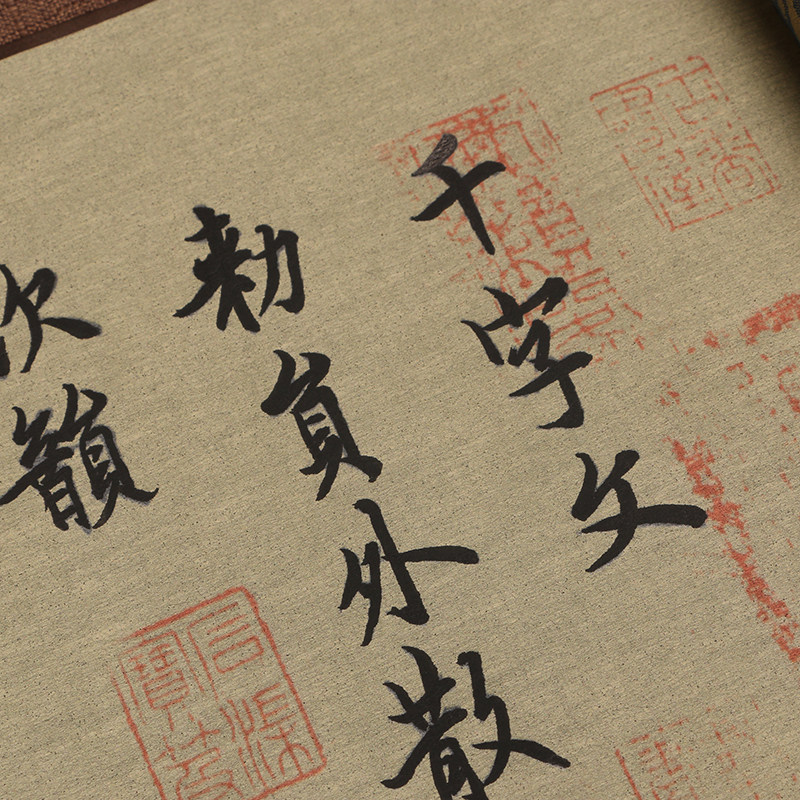 千字文
勑員外散
次韻